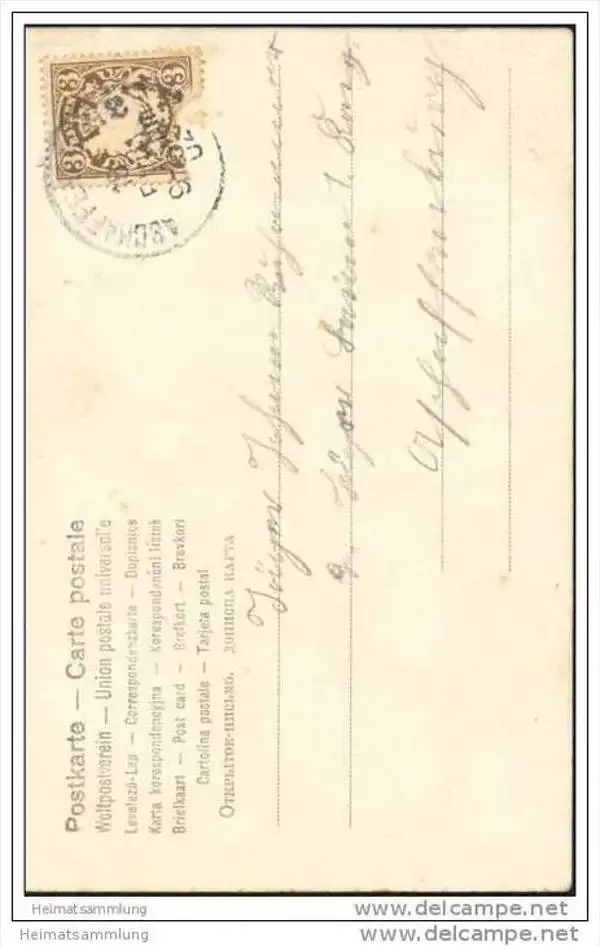 3 3
3 3
ASCHAFFE
Postkarte — Carte postale
Weltpostverein — Union postale universelle
Levelező-Lap — Correspondenzkarte — Dopisnice
Karta korespondencyjna — Korespondenční lístek
Briefkaart — Post card — Brefkort — Brevkort
Cartolina postale — Tarjeta postal
ОТКРЫТОЕ ПИСЬМО. ДОПИСНА КАРТА
Jäger Johann
Jäger 1.
Aschaffenburg
Heimatsammlung
www.delcampe.net
Heimatsammlung
www.delcampe.net